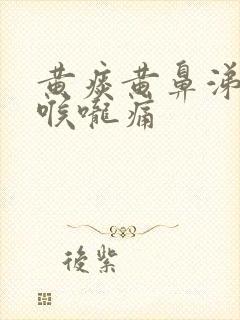 黄痰黄鼻涕
喉咙痛
后紫